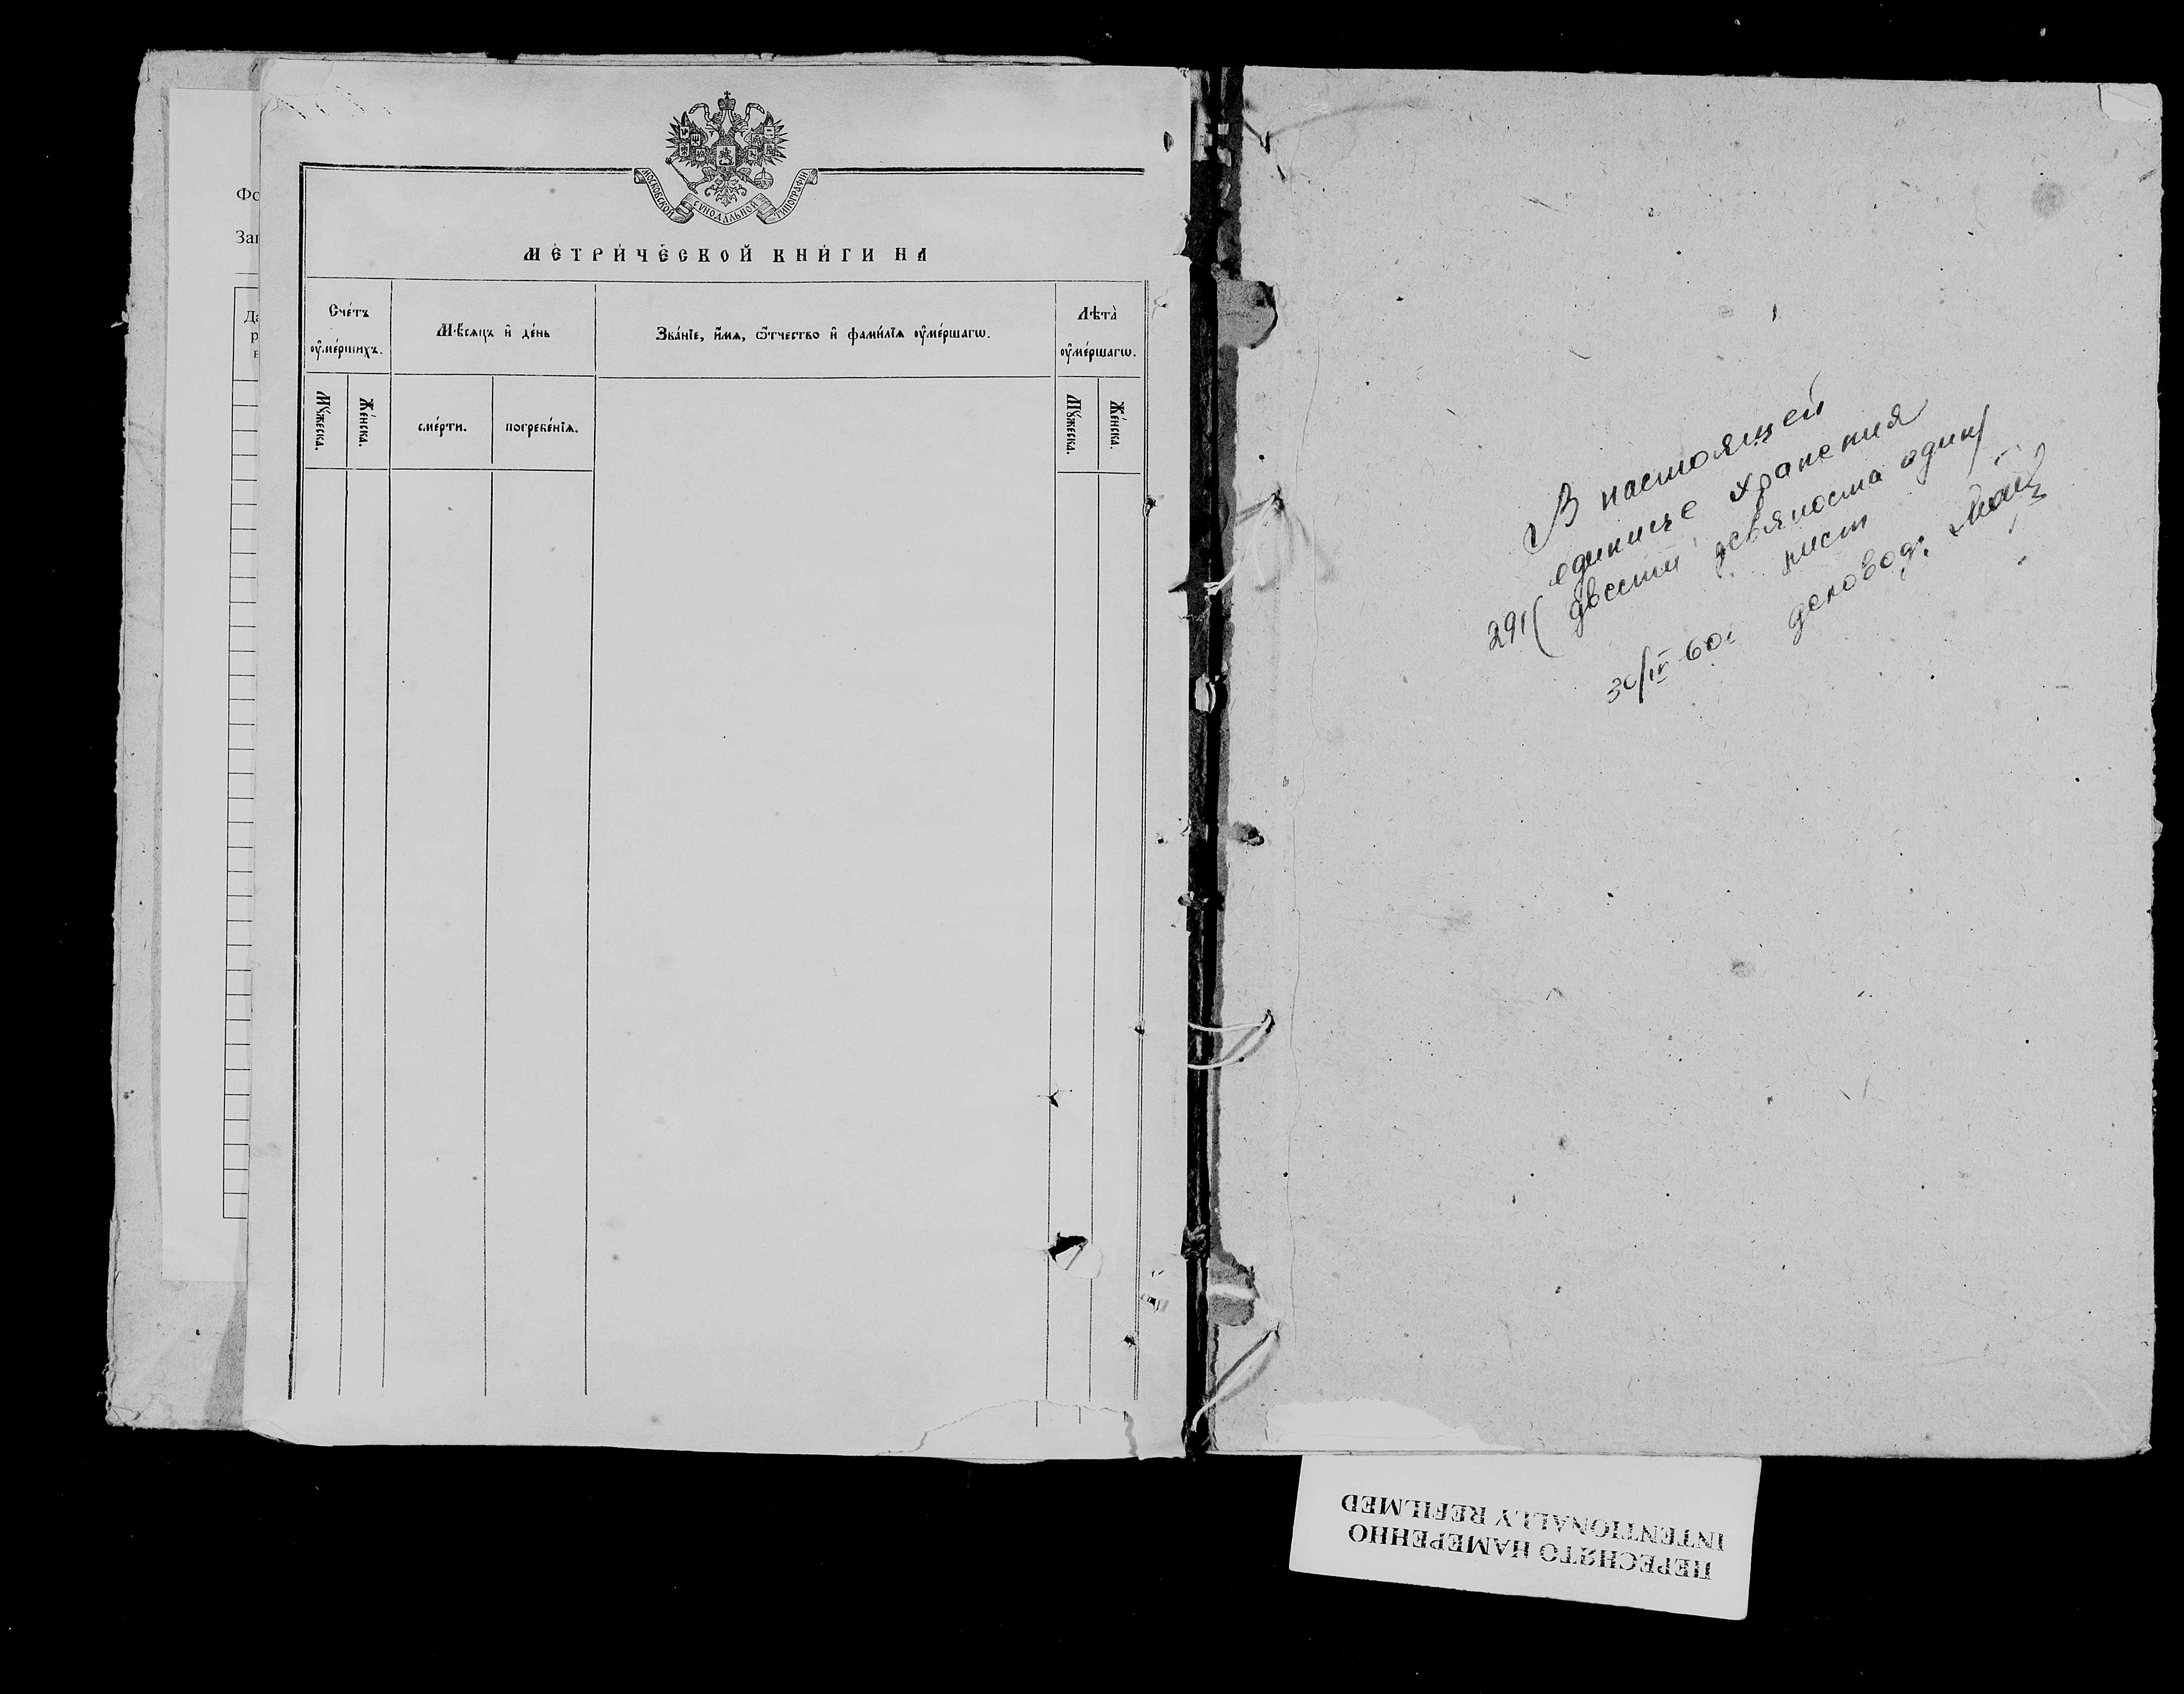 Фо
Заг
Да
р
в
МОСКОВСКОЙ СѴНОДАЛЬНОЙ ТИПОГРАФІИ
МЕ́ТРИ́ЧЕСКОЙ КНИ́ГИ НА
Сче́тъ ᲂу҆ме́ршихъ.
Мѣ́сѧцъ и҆ де́нь
Зва́нїе, и҆́мѧ, ѻ҆́тчество и҆ фами́лїѧ ᲂу҆ме́ршагѡ.
Лѣта̀ ᲂу҆ме́ршагѡ.
Мꙋ́жеска.
Же́нска.
сме́рти.
погребе́нїѧ.
Мꙋ́жеска.
Же́нска.
В настоящей
единице хранения
291( двести девяноста один)
лист
30/IV 60г деловод.
ПЕРЕСНЯТО НАМЕРЕННО
INTENTIONALLY REFILMED